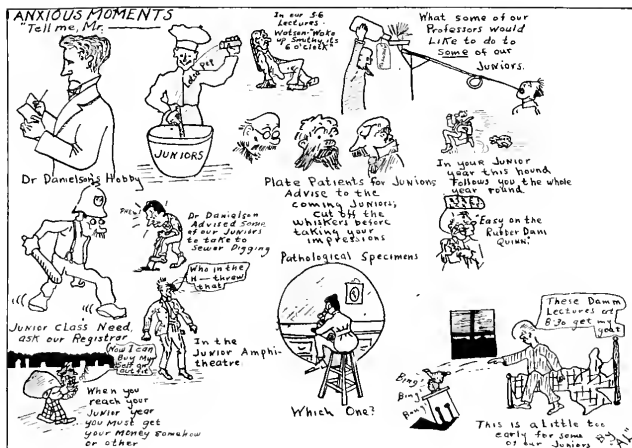 ANXIOUS MOMENTS
"Tell me, Mr.
Dr Danielson's Hobby
PEP
JUNIORS
In our 5-6
Lectures -
Watson - "Wake
up Smithy, its
6 o'clock"
What some of our
Professors would
Like to do to
Some of our
Juniors.
Plate Patients for Juniors
Advise to the
coming Juniors,
Cut off the
whiskers before
taking your
impressions
In your Junior
year this hound
Follows you the whole
year round
"Easy on the
Rubber Dam
Quinn."
Junior Class Need,
ask our Registrar
PHEW!
Dr Danielson
Advised Some
of our Juniors
to take to
Sewer Digging
Who in the
H— threw
that
In the
Junior Amphi-
theatre.
Pathological Specimens
Which One?
Now I can
Buy My
Golf
outfit
When you
reach your
Junior year
you Must get
your Money somehow
or other
These Damm
Lectures at
8:30 get my
goat
Bing!
Bing!
Bang!
This is a little too
early for some
of our Juniors
By